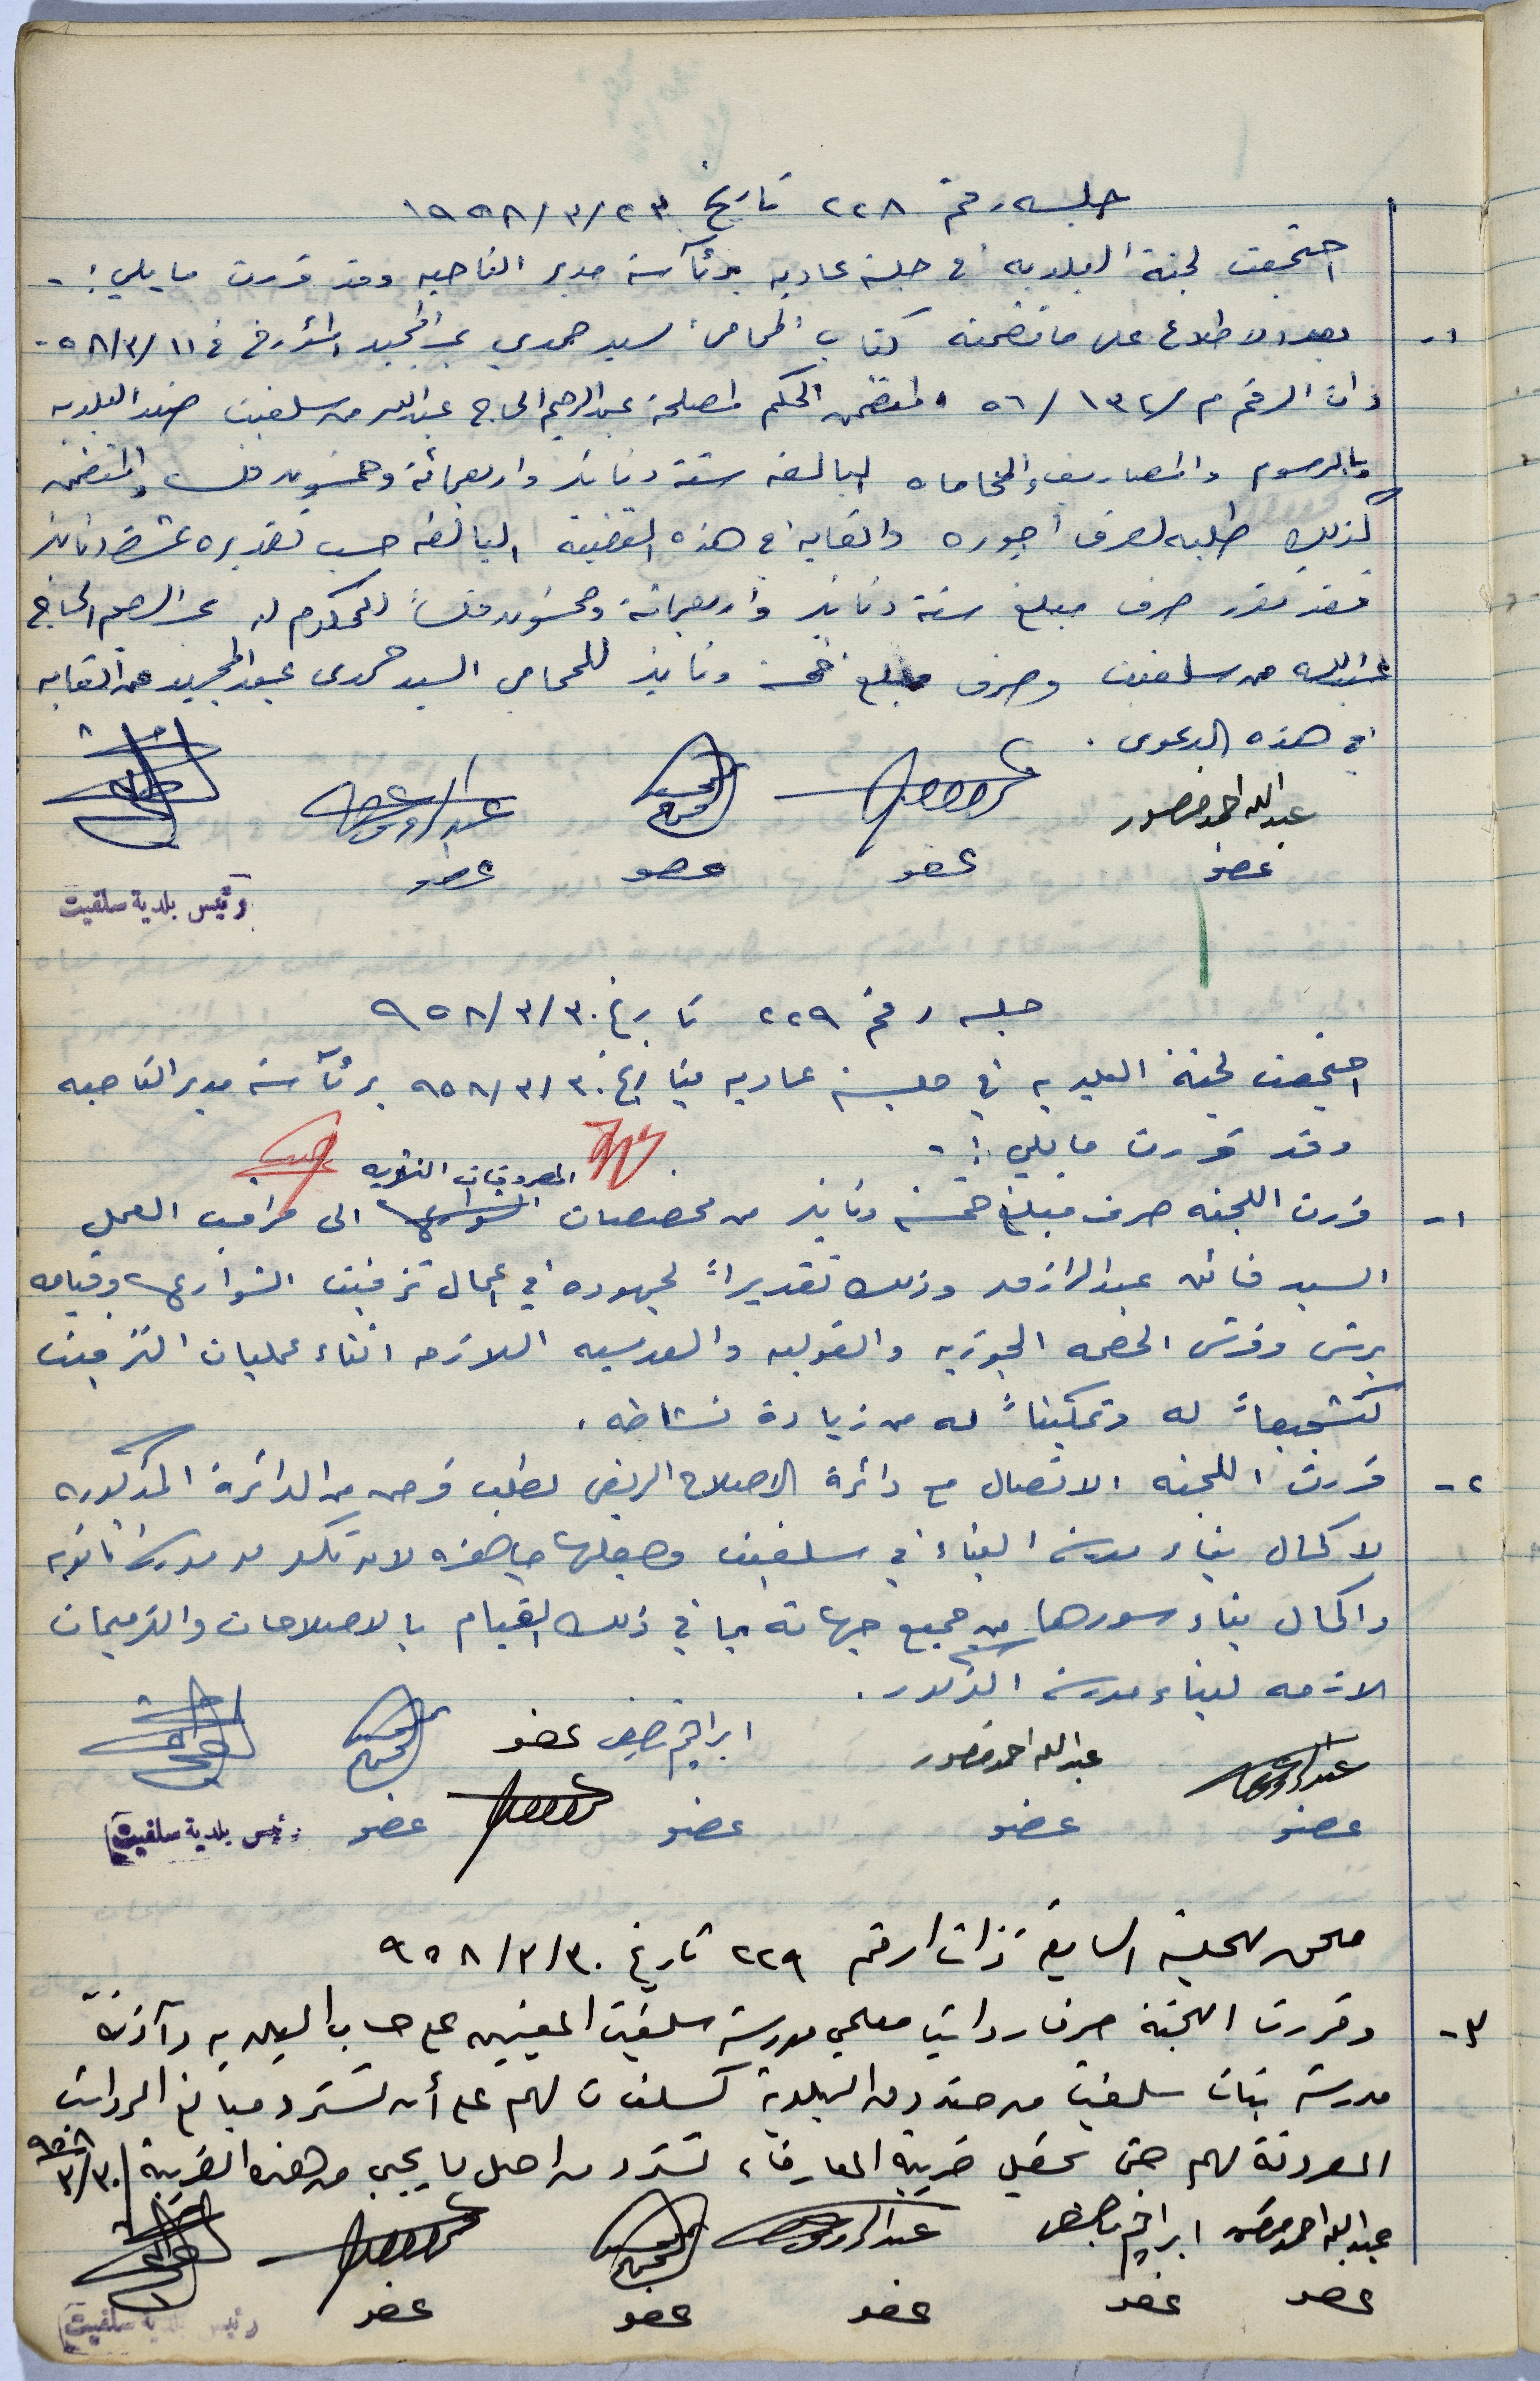 جلسه رقم ٢٢٨ تاريخ ٢٣/٣/١٩٥٨
اجتمعت لجنة البلديه في جلسة عاديه برئآسة مدير الناحيه وقد قررت ما يلي :-
١- بعد الاطلاع على ما تضمنه كتاب المحامي السيد حمدي عبد المجيد المؤرخ في ١١/٣/٥٨-
ذات الرقم م/١٣٢/٥٦ المتضمن الحكم لمصلحة عبد الرحيم الحاج عبدالله من سلفيت ضد البلديه
بالرسوم والمصاريف والمحاماه البالغه ستة دنانير واربعمائة وخمسون فلس والمتضمن
كذلك طلبه لصرف اجوره واتعابه في هذه القضية البالغه حسب تقديره عشرة دنانير
فقد تقرر صرف مبلغ ستة دنانير واربعمائة وخمسون فلساً للمحكوم له عبد الرحيم الحاج
عبدالله من سلفيت وصرف مبلغ خمسة دنانير للمحامي السيد حمدي عبد المجيد عن اتعابه
في هذه الدعوى .
عبدالله احمد منصور
عضو عضو عضو عضو
رئيس بلدية سلفيت
جلسه رقم ٢٢٩ تاريخ ٣٠/٣/٩٥٨
اجتمعت لجنة البلديه في جلسة عاديه بتاريخ ٣٠/٣/٩٥٨ برئآسة مدير الناحيه
وقد قررت ما يلي :-
المصروفات النثريه
١- قررت اللجنه صرف مبلغ خمسة دنانير من مخصصات الشوارع الى مراقب العمل
السيد فائق عبد الرازق وذلك تقديراً لجهوده في اعمال تزفيت الشوارع وقيامه
برش وفرش الحصمه الجوزيه والفوليه والعدسيه اللازمه اثناء عمليات التزفيت
تشجيعاً له وتمكيناً له من زيادة نشاطه .
٢- قررت اللجنه الاتصال مع دائرة الاصلاح الريفي لطلب قرض من الدائرة المذكوره
لاكمال بناء مدرسة البنات في سلفيت وجعلها جاهزه لان تكون مدرسة ثانويه
واكمال بناء سورها من جميع جهاته بما في ذلك القيام بالاصلاحات والترميمات
اللازمه لبناء مدرسة الذكور .
عبدالله احمد منصور ابراهيم عضو
عضو عضو عضو عضو رئيس بلدية سلفيت
ملحق للجلسة السابقة ذات الرقم ٢٢٩ تاريخ ٣٠/٣/٩٥٨
٣- وقررت اللجنة صرف رواتب معلمي مدرسة سلفيت المعينين على حساب البلديه وآذنة
مدرسة بنات سلفيت من صندوق البلدية كسلفات لهم على أن تسترد مبالغ الرواتب
المصروفة لهم حين تحصيل ضريبة المعارف، تسترد من اصل ما يجبى من هذه الضريبة ٣٠/٣/٩٥٨
عبدالله احمد منصور ابراهيم
عضو عضو عضو عضو عضو رئيس بلدية سلفيت